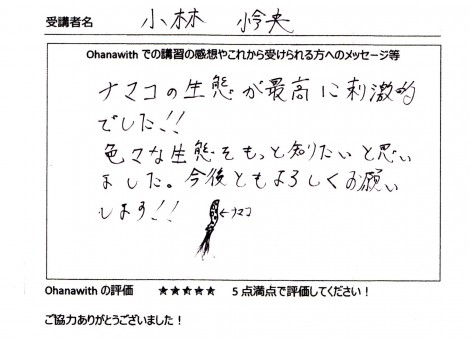 受講者名 小林 怜央
Ohanawith での講習の感想やこれから受けられる方へのメッセージ等
ナマコの生態が最高に刺激的
でした!!
色々な生態をもっと知りたいと思い
ました。今後ともよろしくお願い
します!!
←ナマコ
Ohanawith の評価 ★★★★★ 5 点満点で評価してください！
ご協力ありがとうございました！